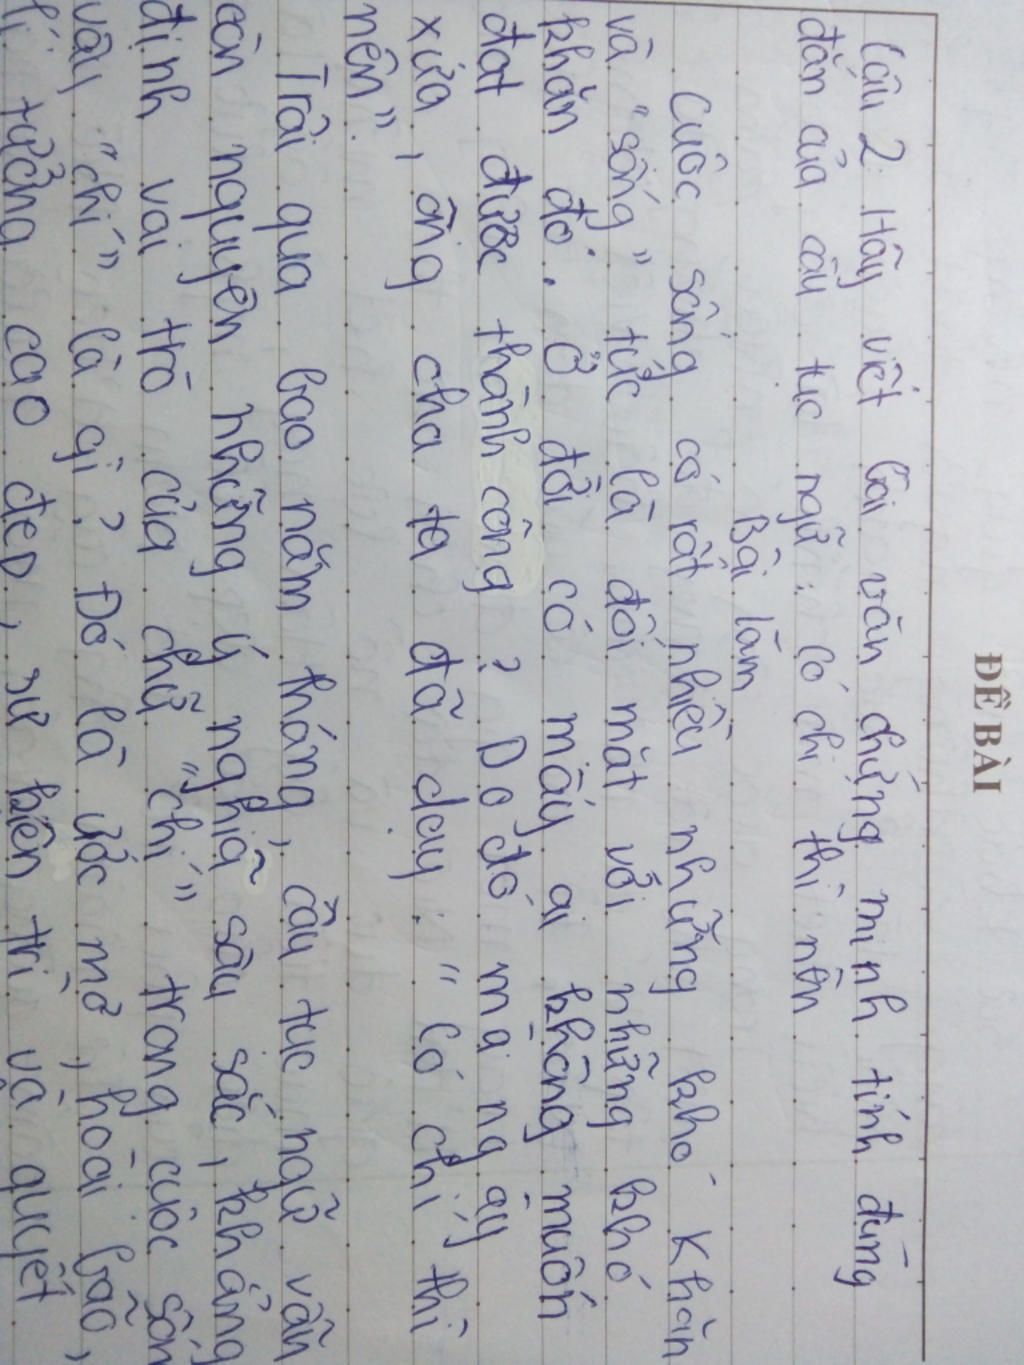 ĐỀ BÀI
Câu 2: Hãy viết bài văn chứng minh tính đúng
đắn của câu tục ngữ: có chí thì nên
Bài làm
Cuộc sống có rất nhiều những khó khăn
và "sống" tức là đối mặt với những khó
khăn đó. Ở đời có mấy ai không muốn
đạt được thành công? Do đó mà ngày
xưa, ông cha ta đã dạy: "Có chí thì
nên".
Trải qua bao năm tháng, câu tục ngữ vẫn
còn nguyên những ý nghĩa sâu sắc, khẳng
định vai trò của chữ "chí" trong cuộc sống
vậy "chí" là gì? Đó là ước mơ, hoài bão,
lí tưởng cao đẹp, sự kiên trì và quyết